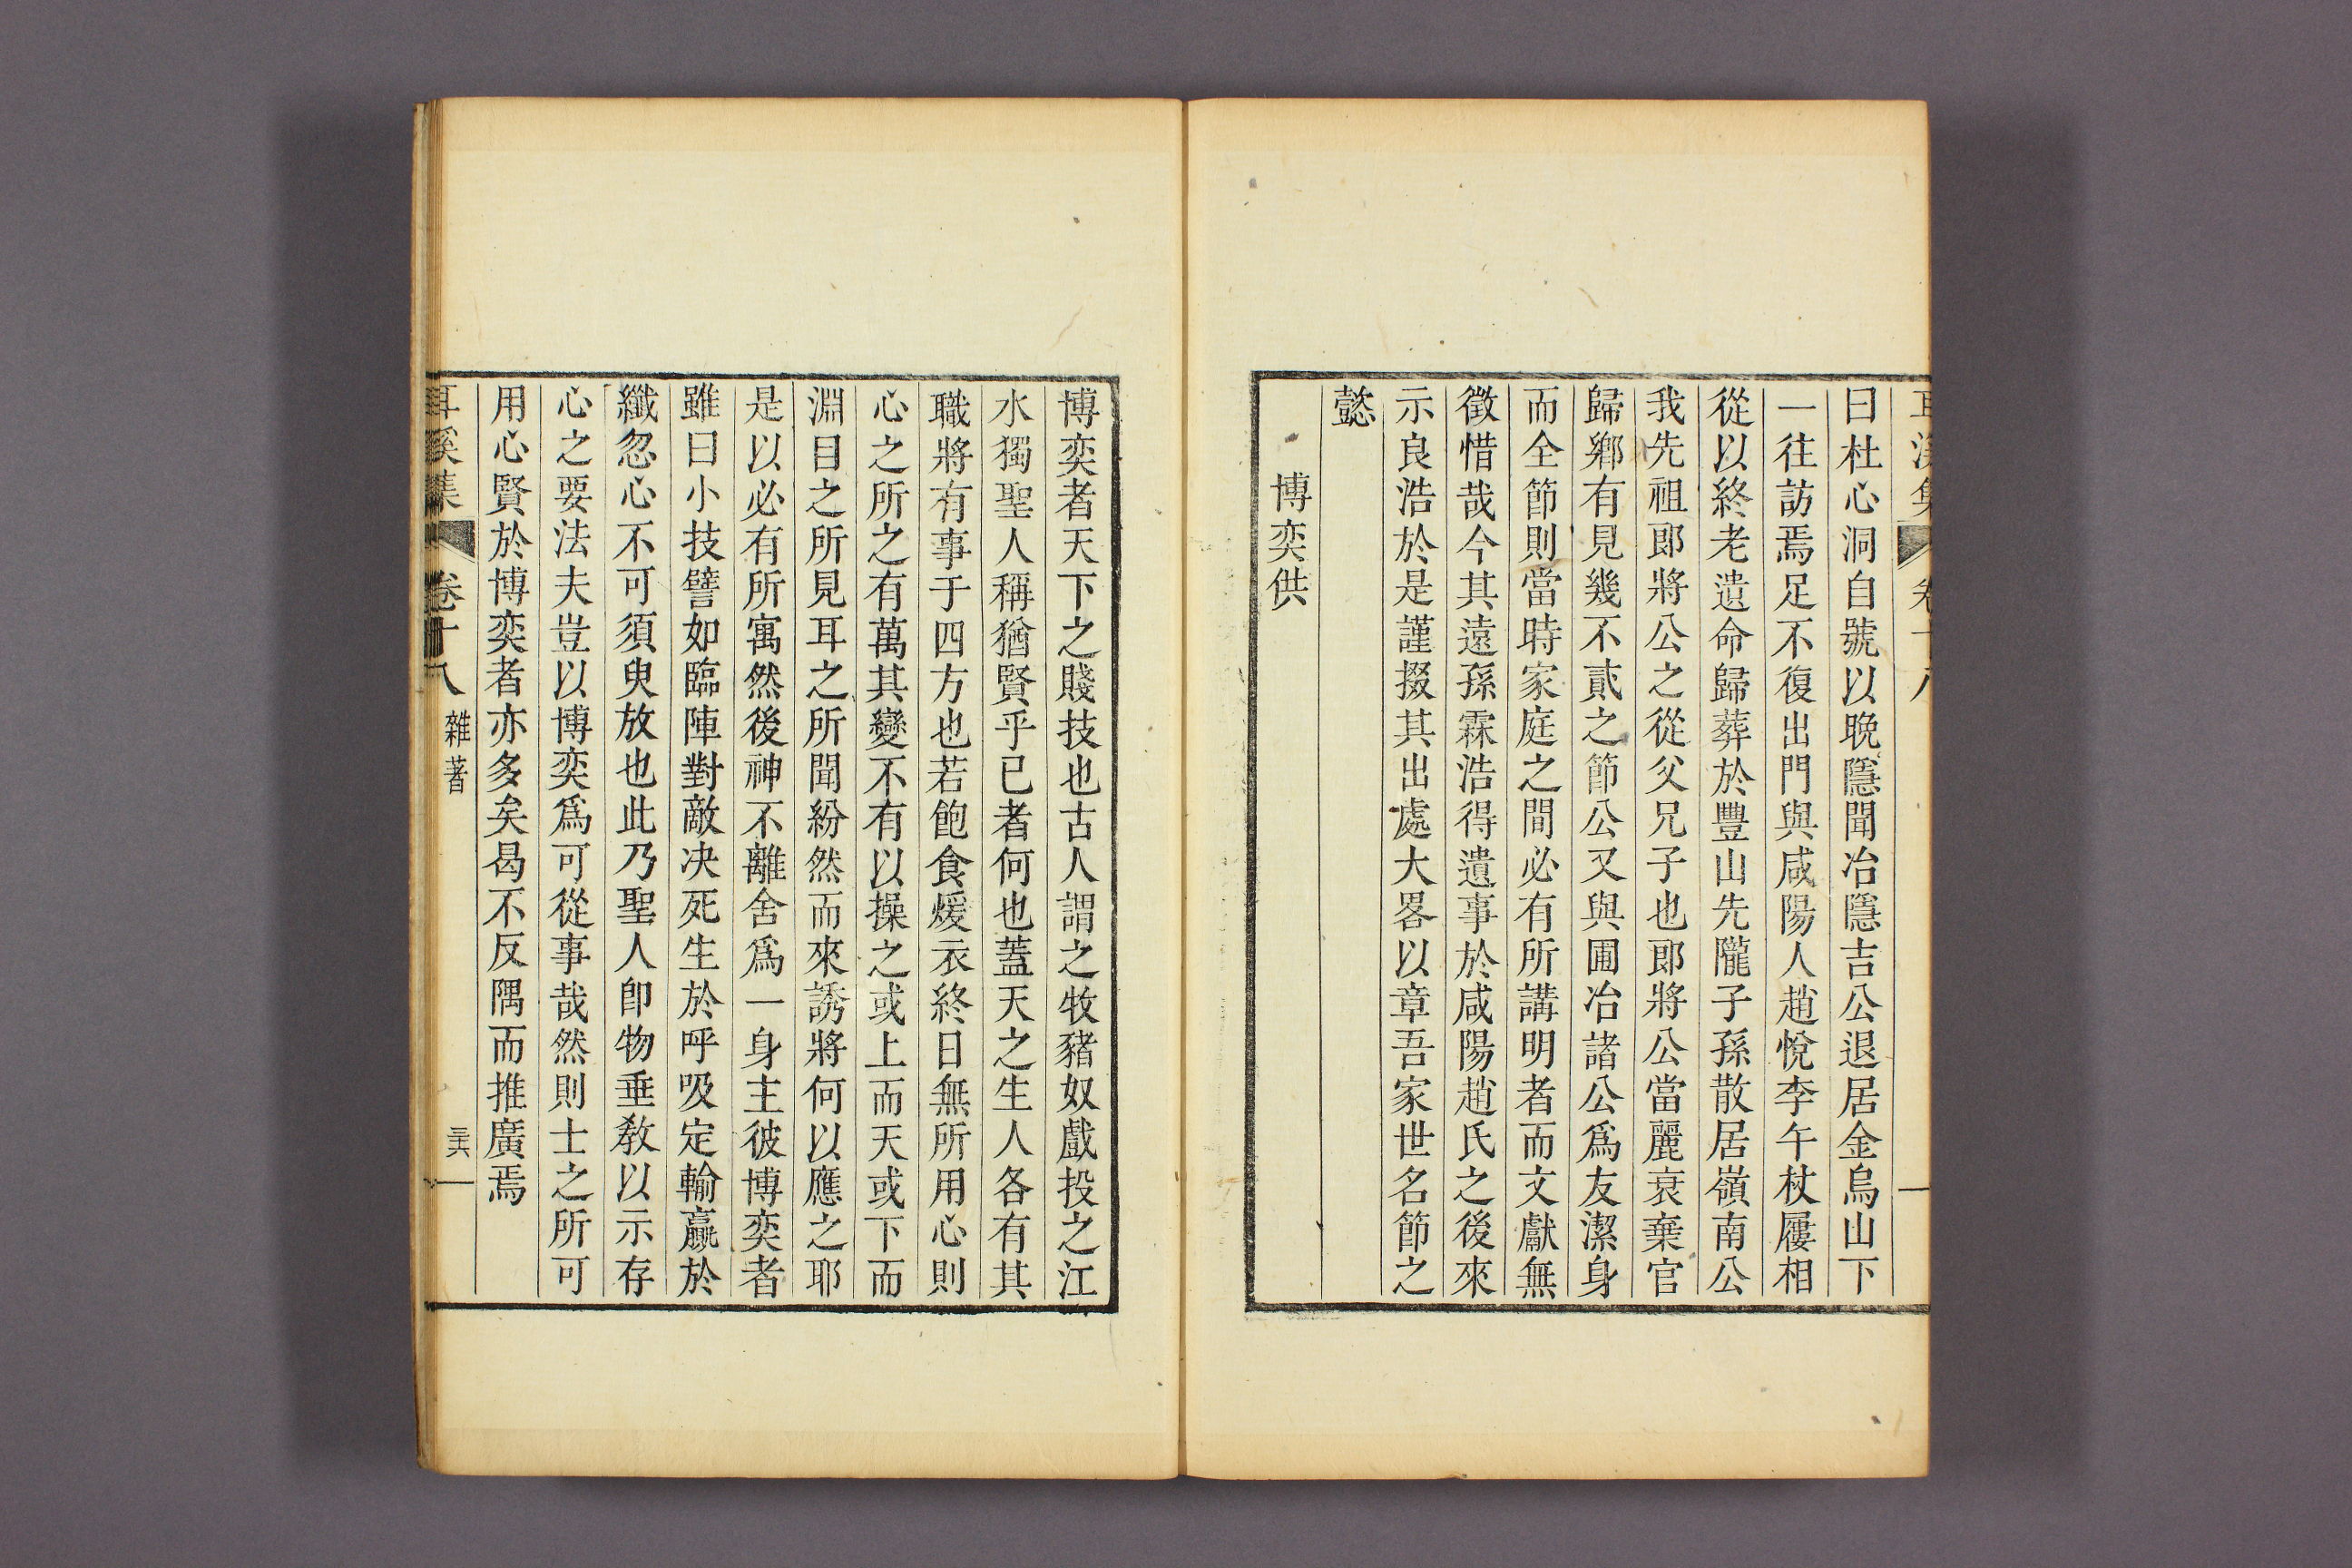 耳溪集 卷十八
曰杜心洞自號以晩隱聞冶隱吉公退居金烏山下
一往訪焉足不復出門與咸陽人趙悅李午杖屨相
從以終老遺命歸葬於豐山先隴子孫散居嶺南公
我先祖郎將公之從父兄子也郎將公當麗衰棄官
歸鄕有見幾不貳之節公又與圃冶諸公爲友潔身
而全節則當時家庭之間必有所講明者而文獻無
徵惜哉今其遠孫霖浩得遺事於咸陽趙氏之後來
示良浩於是謹掇其出處大畧以章吾家世名節之
懿
博奕供
博奕者天下之賤技也古人謂之牧豬奴戲投之江
水獨聖人稱猶賢乎已者何也蓋天之生人各有其
職將有事于四方也若飽食煖衣終日無所用心則
心之所之有萬其變不有以操之或上而天或下而
淵目之所見耳之所聞紛然而來誘將何以應之耶
是以必有所寓然後神不離舍爲一身主彼博奕者
雖曰小技譬如臨陣對敵决死生於呼吸定輸贏於
纖忽心不可須臾放也此乃聖人卽物垂敎以示存
心之要法夫豈以博奕爲可從事哉然則士之所可
用心賢於博奕者亦多矣曷不反隅而推廣焉
耳溪集 卷十八 雜著 三六